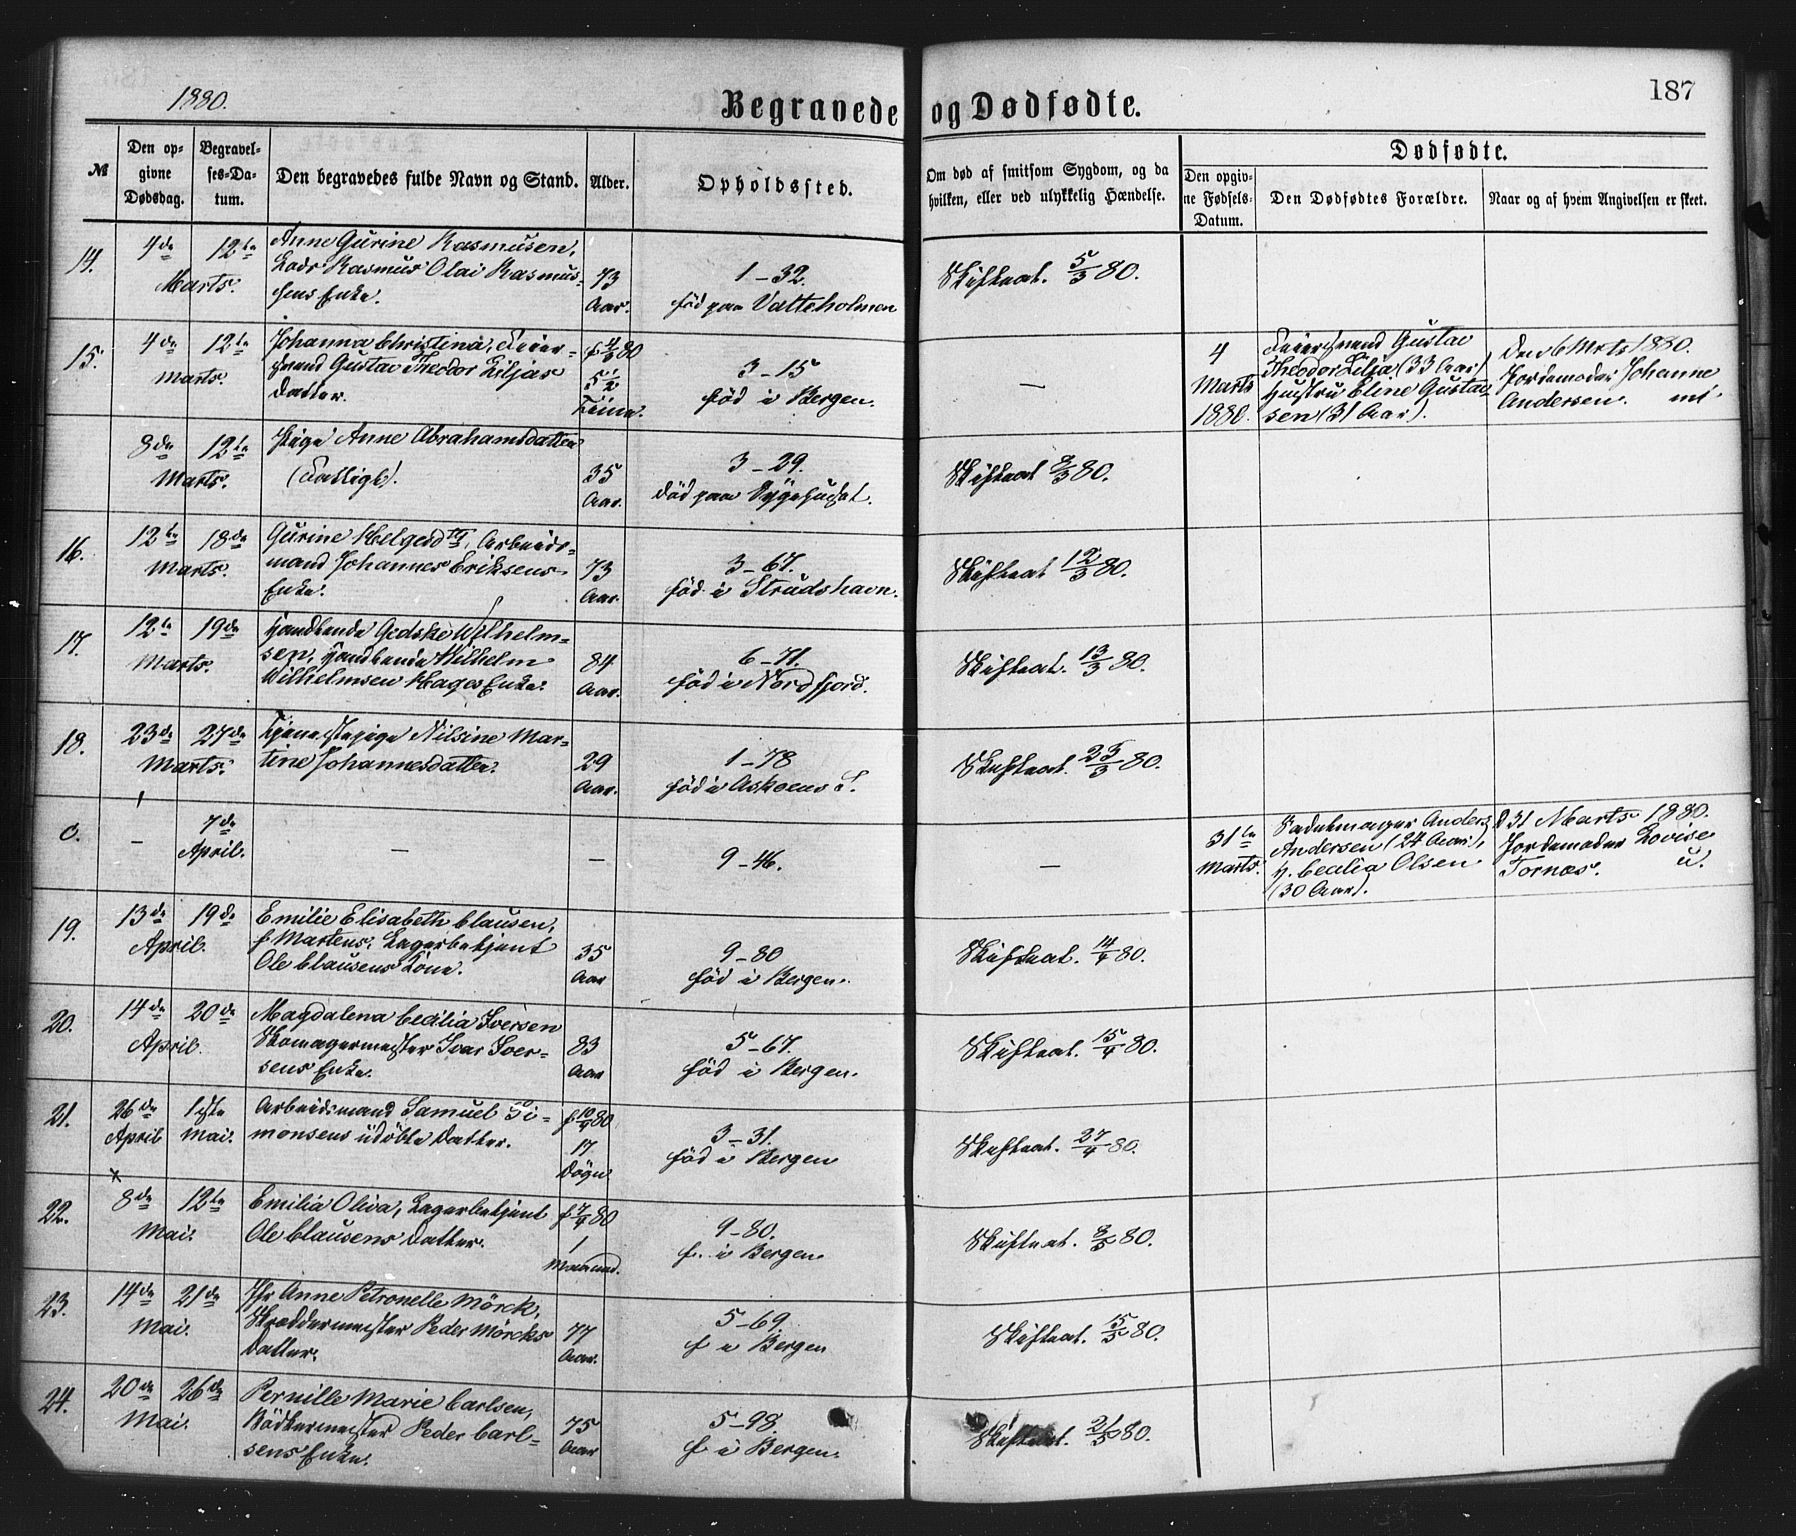 1880.
Begravede og Dødfødte.
187
№
Den opgivne Dødsdag.
Begravelses-Datum.
Den begravedes fulde Navn og Stand.
Alder.
Opholdssted.
Om død af smitsom Sygdom, og da
hvilken, eller ved ulykkelig Hændelse.
Dødfødte.
Den opgivne Fødsels-Datum.
Den Dødfødtes Forældre.
Naar og af hvem Angivelsen er skeet.
14.
4de 12te
Marts.
Anne Gurine Rasmusen,
Lods Rasmus Olai Rasmus-
sens Enke.
73
Aar.
1-32.
född paa Valteholmen
Skifteat. 5/3 80.
15.
4de 12te
Marts.
Johanna Christina, Feier-
svend Gustav Theodor Liljas
Datter.
f 4/3 80
5 1/2
Time.
3-15
född i Bergen.
—
4
Marts
1880.
Feiersvend Gustav
Theodor Lilja (33 Aar)
Hustru Eline Gustav-
sen (31 Aar).
Den 6 Mrts 1880.
Jordemoder Johanne
Andersen.
8de 12te
Marts.
Pige Anne Abrahamsdatter
(Fattigl).
35
Aar.
3-29.
död paa Sygehuset.
Skifteat 8/3 80.
16.
12te 18de
Marts.
Gurine Helgesdtr, Arbeids-
mand Johannes Eriksens
Enke.
73
Aar.
3-67.
föd i Strudshavn.
Skifteat 12/3 80.
17.
12te 19de
Marts.
Handlende Gedske Wilhelm-
sen, Handlende Wilhelm
Wilhelmsen Hages Enke.
84
Aar.
6-71.
föd i Nordfjord.
Skifteat. 13/3 80.
18.
23de 27de
Marts.
Tjenestepige Nilsine Mar-
tine Johannesdatter.
29
Aar.
1-78
föd i Askoens S.
Skifteat. 23/3 80.
c.
—
7de
April.
—
—
9-46.
—
31te
Marts.
Sadelmager Anders
Andersen (24 Aar),
H. Cecilia Olsen
(30 Aar).
D 31 Marts 1880.
Jordemoder Lovise
Tornæs. u.
19.
13de 19de
April.
Emilie Elisabeth Clausen,
f Martens, Lagerbetjent
Ole Clausens Kone.
35
Aar
9-80
föd i Bergen.
Skifteat. 14/4 80.
20.
14de 20de
April.
Magdalena Cecilia Iversen
Skomagermester Ivar Iver-
sens Enke.
83
Aar
5-67.
föd i Bergen.
Skifteat. 15/4 80.
21.
26de 1ste
April Mai.
Arbeidsmand Samuel Si-
monsens udöbte Datter.
f 10/4 80
17
Dögn
3-31.
föd i Bergen
Skifteat. 27/4 80.
22.
8de 12te
Mai.
Emilia Oliva, Lagerbetjent
Ole Clausens Datter.
f 7/4 80
1
Maaned.
9-80.
f. i Bergen.
Skifteat. 8/5 80.
23.
14de 21de
Mai.
Jfr Anne Petronelle Mörck,
Skræddermester Peder Mörcks
Datter.
77
Aar.
5-69.
f i Bergen
Skifteat. 15/5 80.
24.
20de 26de
Mai.
Pernille Marie Carlsen,
Bödkermester Peder Carl-
sens Enke.
75
Aar
5-98.
f i Bergen.
Skifteat. 21/5 80.